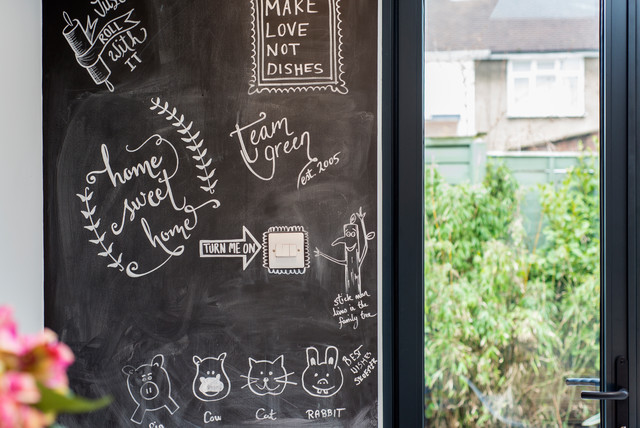 Just
ROLL
with
IT
MAKE
LOVE
NOT
DISHES
team
green
est. 2005
home
sweet
home
TURN ME ON
stick man
lives in the
family tree
BEST
DISHES
Cow
Cat
RABBIT